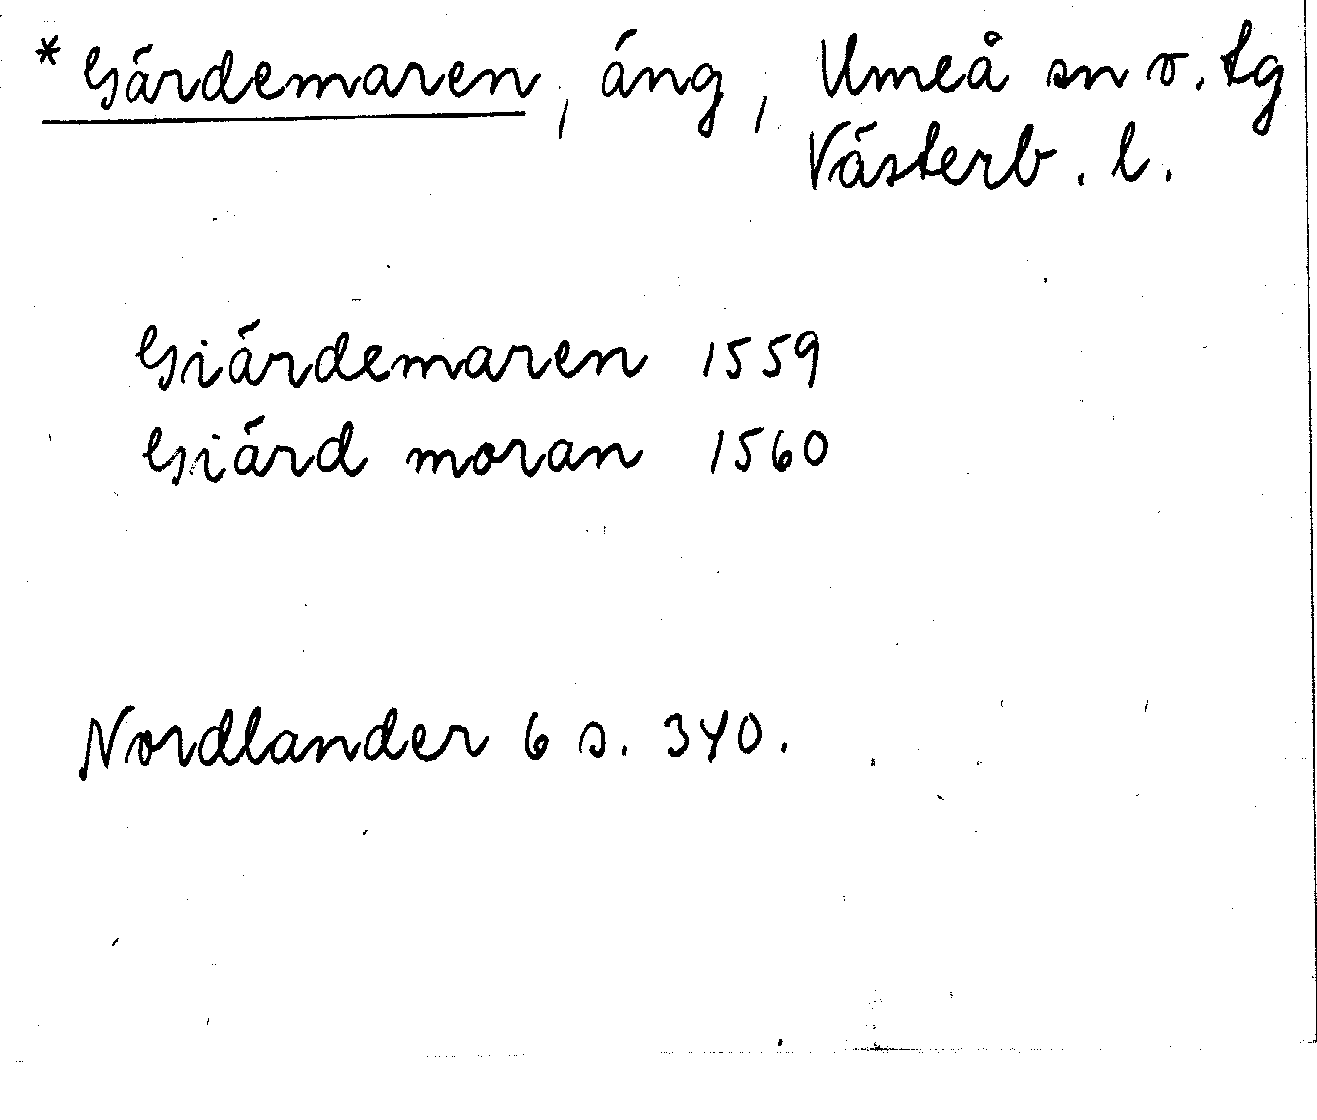 * Gärdemaren, äng, Umeå sn o. tg
Västerb. l.
Giärdemaren 1559
Giärd moran 1560
Nordlander 6 s. 340.